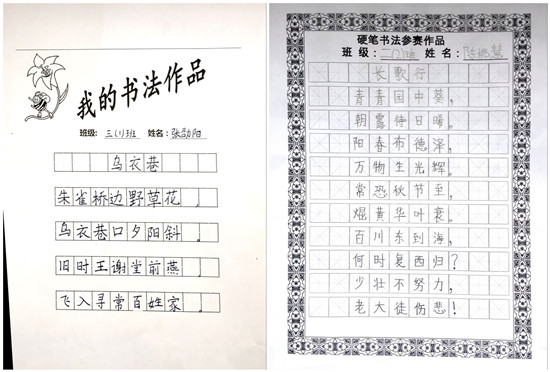 我的书法作品
班级: 三(1)班 姓名: 张劭阳
乌衣巷
朱雀桥边野草花。
乌衣巷口夕阳斜。
旧时王谢堂前燕。
飞入寻常百姓家。
硬笔书法参赛作品
班级: 姓名:
长歌行
青青园中葵,
朝露待日晞。
阳春布德泽,
万物生光辉。
常恐秋节至,
焜黄华叶衰。
百川东到海,
何时复西归?
少壮不努力,
老大徒伤悲!